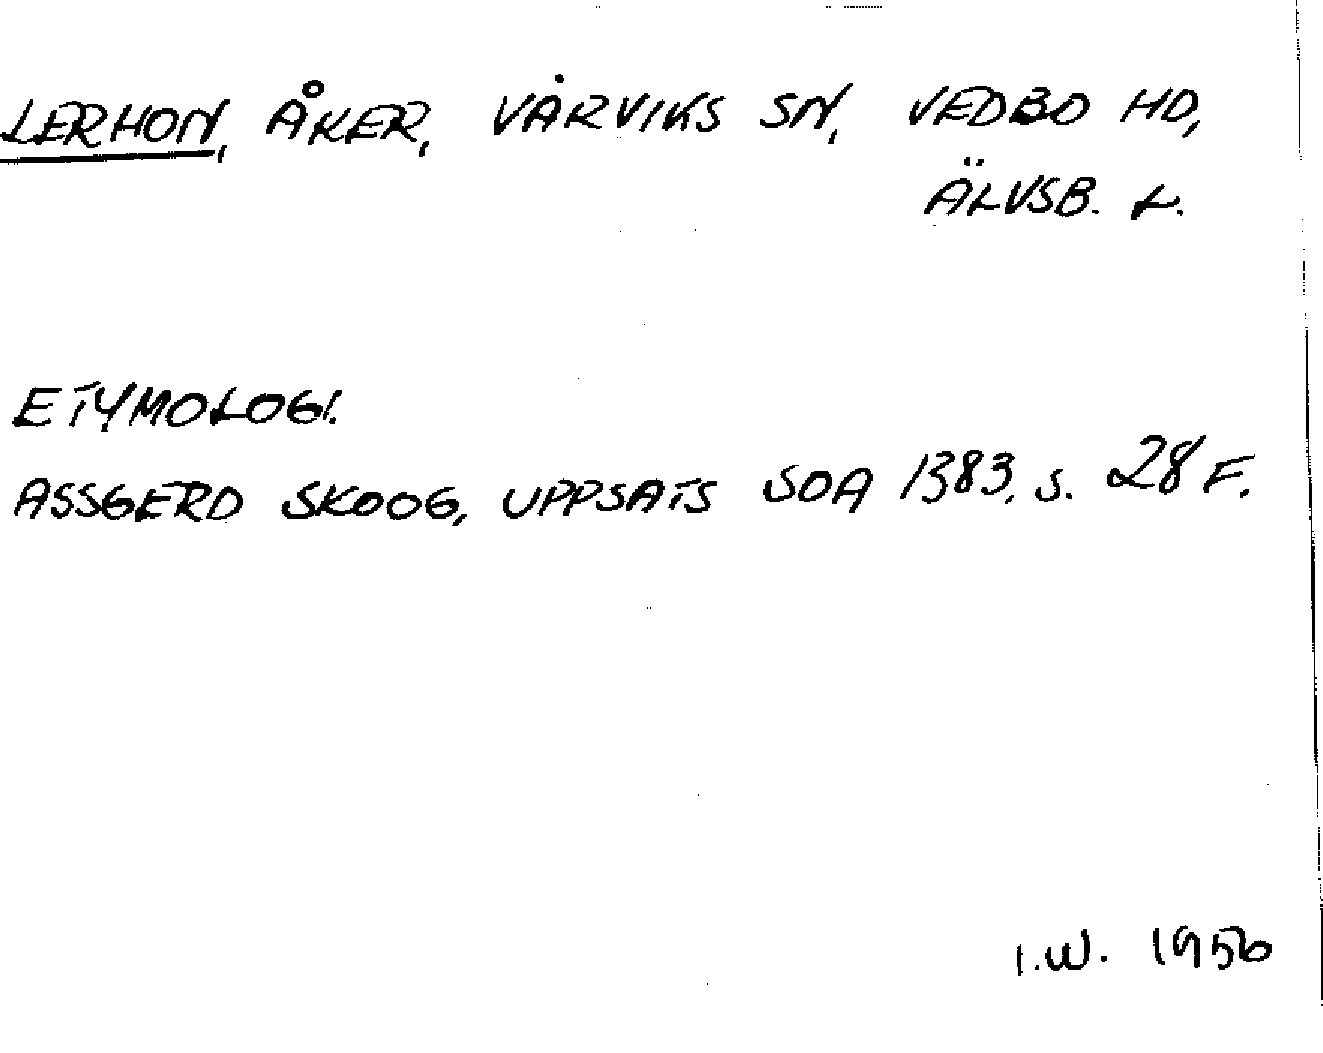 LERHON, ÅKER, VÅRVIKS SN, VEDBO HD,
ÄLVSB. L.
ETYMOLOGI.
ASSGERD SKOOG, UPPSATS SOA 1383, S. 28 F.
I.W. 1956